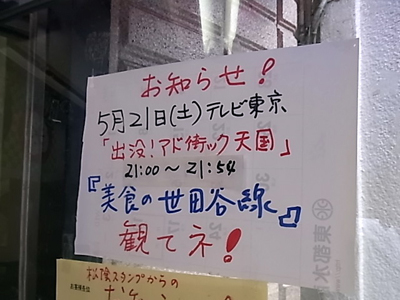 お知らせ!
5月21日(土)テレビ東京
「出没!アド街ック天国」
21:00〜21:54
『美食の世田谷線』
観てネ!
松陰スタンプからの